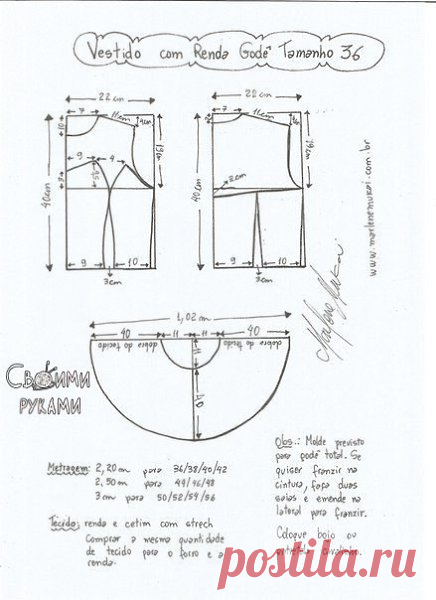 Vestido com Renda Godê Tamanho 36
22 cm
22 cm
7
11cm
4cm
7
11cm
10
19cm
19cm
9
4
40cm
40cm
2cm
9
10
9
10
3cm
3cm
www.marlenemukai.com.br
Marlene Mukai
1,02 cm
40
11
11
40
dobra do tecido
dobra do tecido
11
40
Своими
руками
Metragem: 2,20m para 36/38/40/42
2,50m para 44/46/48
3 cm para 50/52/54/56
Tecido: renda e cetim com strech
Comprar a mesma quantidade
de tecido para o forro e a
renda.
Obs.: Molde previsto
para godê total. Se
quiser franzir na
cintura, faça duas
saias e emende na
lateral para franzir.
Coloque bojo ou
postila.ru